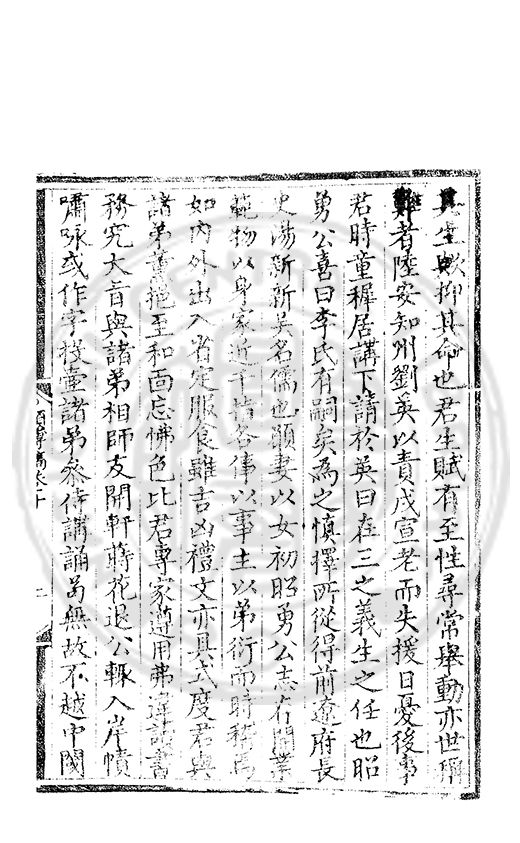 其生歟抑其命也君生賦有至性尋常舉動亦世稱
難者陸安知州劉英以責戍宣老而失援日憂後事
君時童穉居講下請於英曰在三之義生之任也昭
勇公喜曰李氏有嗣矣為之慎擇所從得前遼府長
史湯新新吳名儒也願妻以女初昭勇公志右閥業
範物以身家近千指各俾以事主以弟衍而時稽焉
如內外出入省定服食雖吉凶禮文亦具式度君與
諸弟薰挹至和面忘怫色比君專家遵用弗違設書
務究大旨與諸弟相師友開軒蒔花退公輒入岸幘
嘯咏或作字投壺諸弟參侍講誦若無故不越中閫